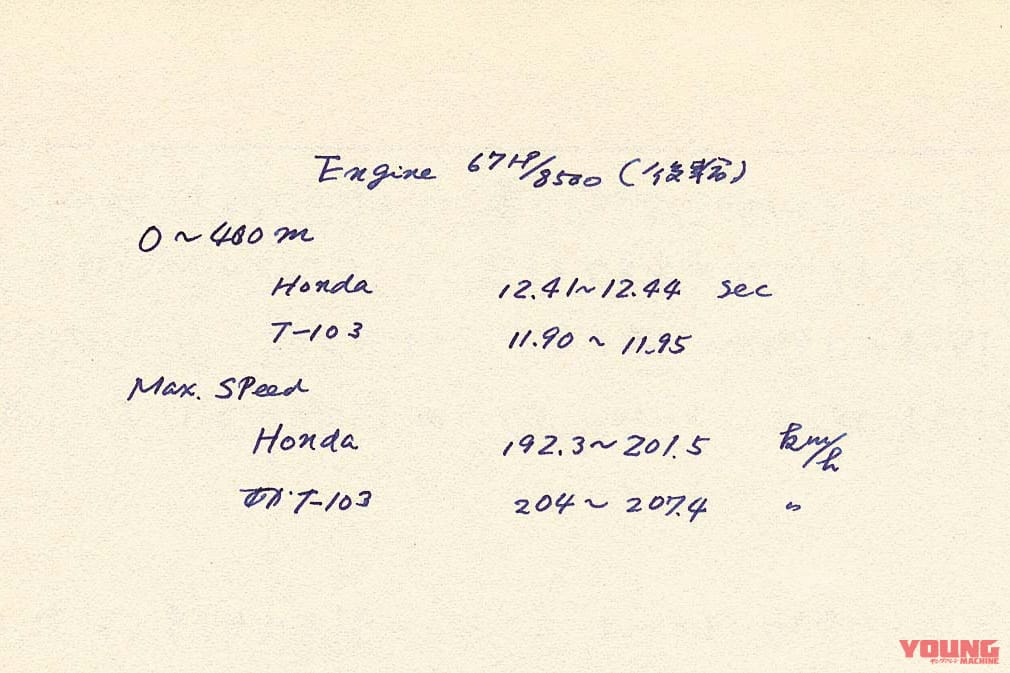 Engine 67HP/8500 (後輪)
0~400m
Honda 12.41~12.44 sec
T-103 11.90~11.95
Max. Speed
Honda 192.3~201.5 km/h
T-103 204~207.4 〃
YOUNG
ヤングマシン MACHINE